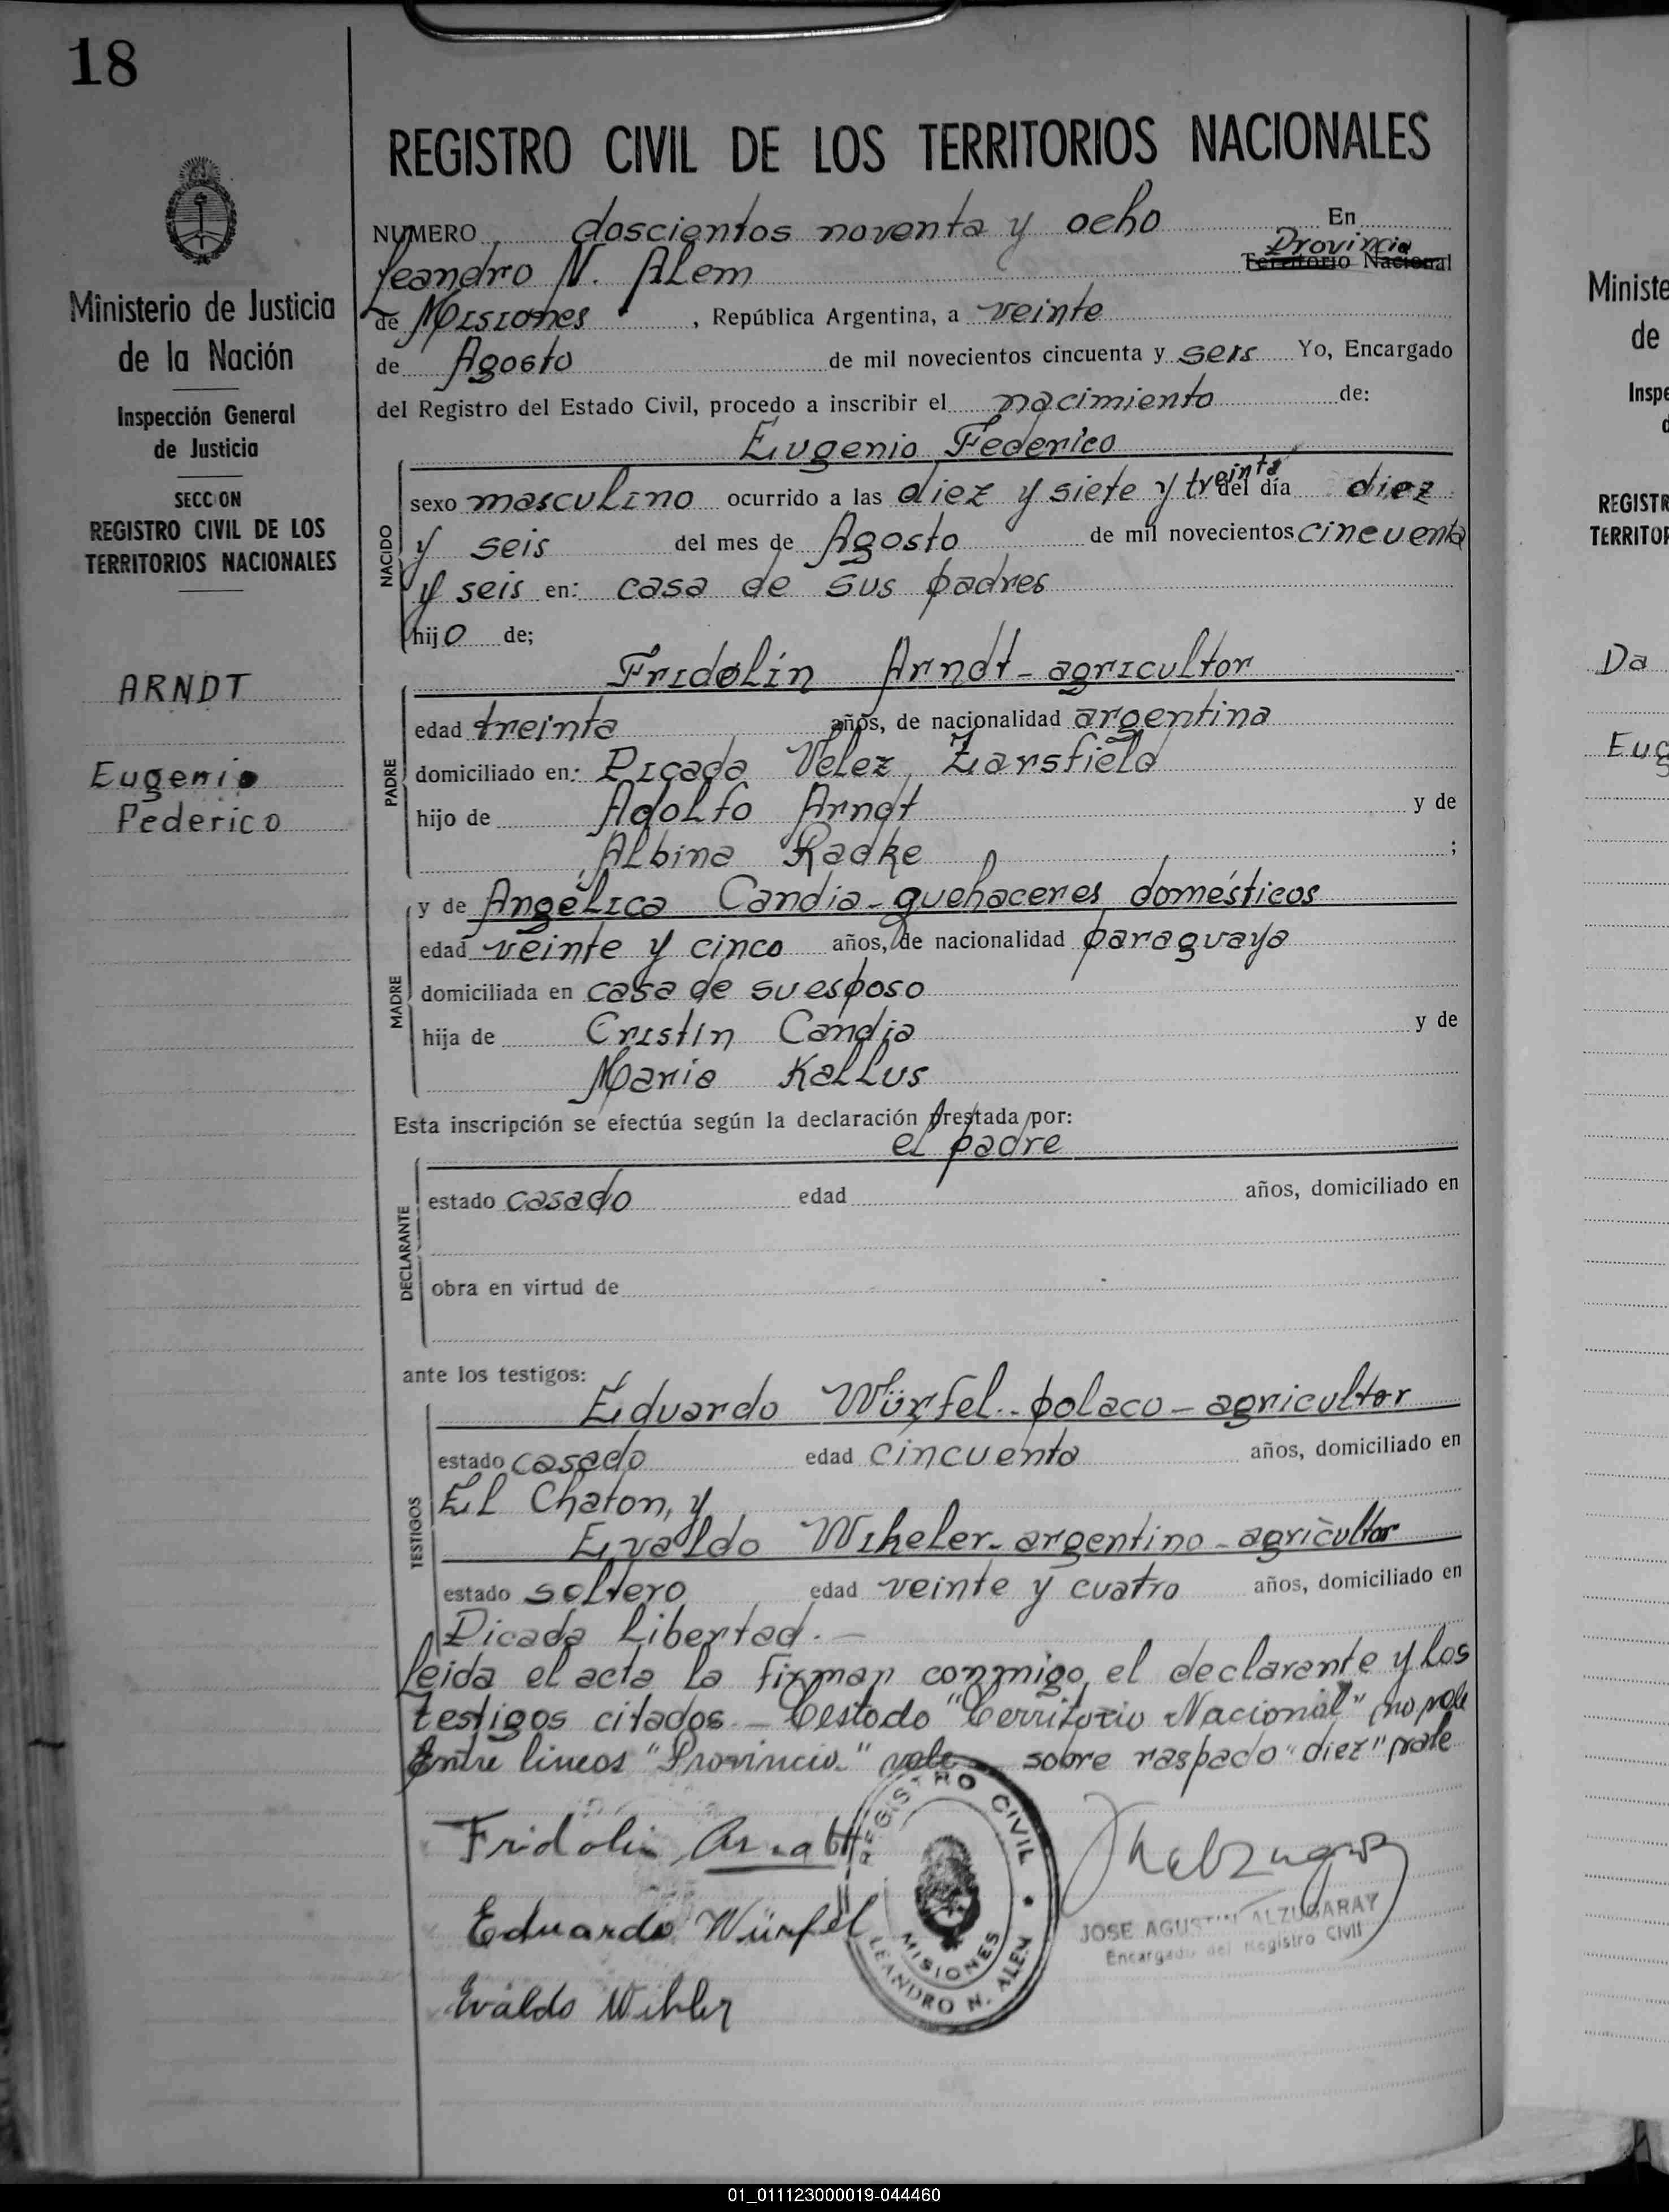 18
REGISTRO CIVIL DE LOS TERRITORIOS NACIONALES
Ministerio de Justicia
de la Nación
Inspección General
de Justicia
SECCION
REGISTRO CIVIL DE LOS
TERRITORIOS NACIONALES
ARNDT
Eugenio
Federico
NUMERO doscientos noventa y ocho En
Leandro N. Alem Provincia Territorio Nacional
de Misiones, República Argentina, a veinte
de Agosto de mil novecientos cincuenta y seis Yo, Encargado
del Registro del Estado Civil, procedo a inscribir el nacimiento de:
Eugenio Federico
NACIDO
sexo masculino ocurrido a las diez y siete y treinta del día diez
y seis del mes de Agosto de mil novecientos cincuenta
y seis en: casa de sus padres
hijo de;
Fridolin Arndt - agricultor
PADRE
edad treinta años, de nacionalidad argentina
domiciliado en: Picada Velez Zarsfield
hijo de Adolfo Arndt y de
Albina Radke ;
y de Angélica Candia - quehaceres domésticos
MADRE
edad veinte y cinco años, de nacionalidad paraguaya
domiciliada en casa de su esposo
hija de Cristin Candia y de
Maria Kallus
Esta inscripción se efectúa según la declaración prestada por:
el padre
DECLARANTE
estado casado edad años, domiciliado en
obra en virtud de
ante los testigos:
Eduardo Würfel - polaco - agricultor
TESTIGOS
estado casado edad cincuenta años, domiciliado en
El Chaton, y
Evaldo Wiheler - argentino - agricultor
estado soltero edad veinte y cuatro años, domiciliado en
Picada Libertad. -
Leida el acta la firman conmigo, el declarante y los
testigos citados - Testado "Territorio Nacional" no vale
Entre lineas "Provincia" vale - sobre raspado "diez" vale
Fridolin Arndt
Eduardo Würfel
Evaldo Wihler
REGISTRO CIVIL
MISIONES
LEANDRO N. ALEM
JOSE AGUSTIN ALZUGARAY
Encargado del Registro Civil
Ministe
de
Inspe
d
REGISTR
TERRITOR
Da
Eug
01_011123000019-044460